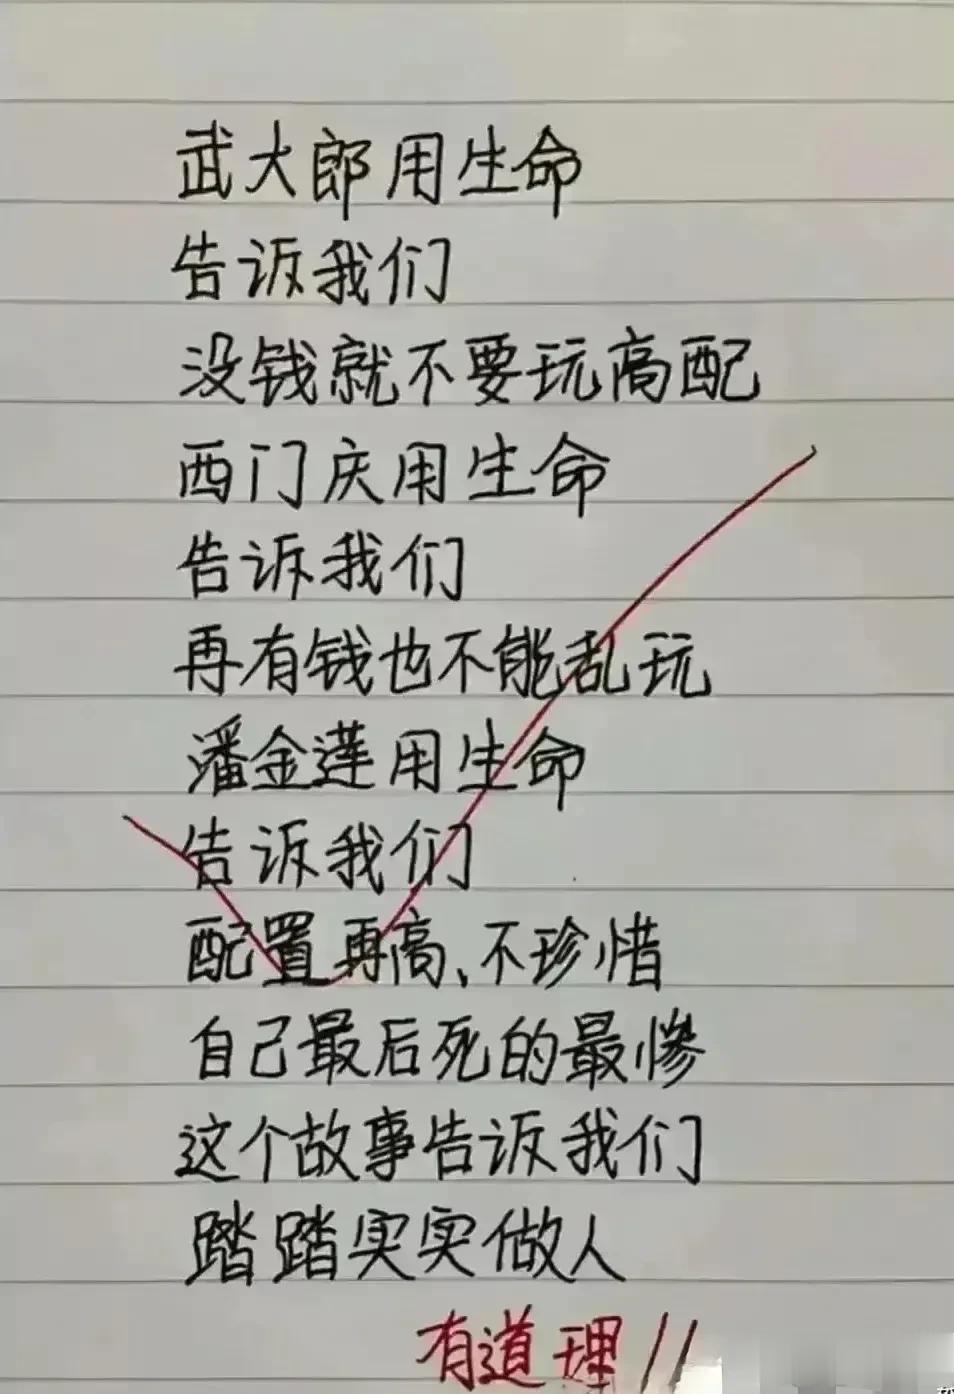 武大郎用生命
告诉我们
没钱就不要玩高配
西门庆用生命
告诉我们
再有钱也不能乱玩
潘金莲用生命
告诉我们
配置再高、不珍惜
自己最后死的最惨
这个故事告诉我们
踏踏实实做人
有道理!!